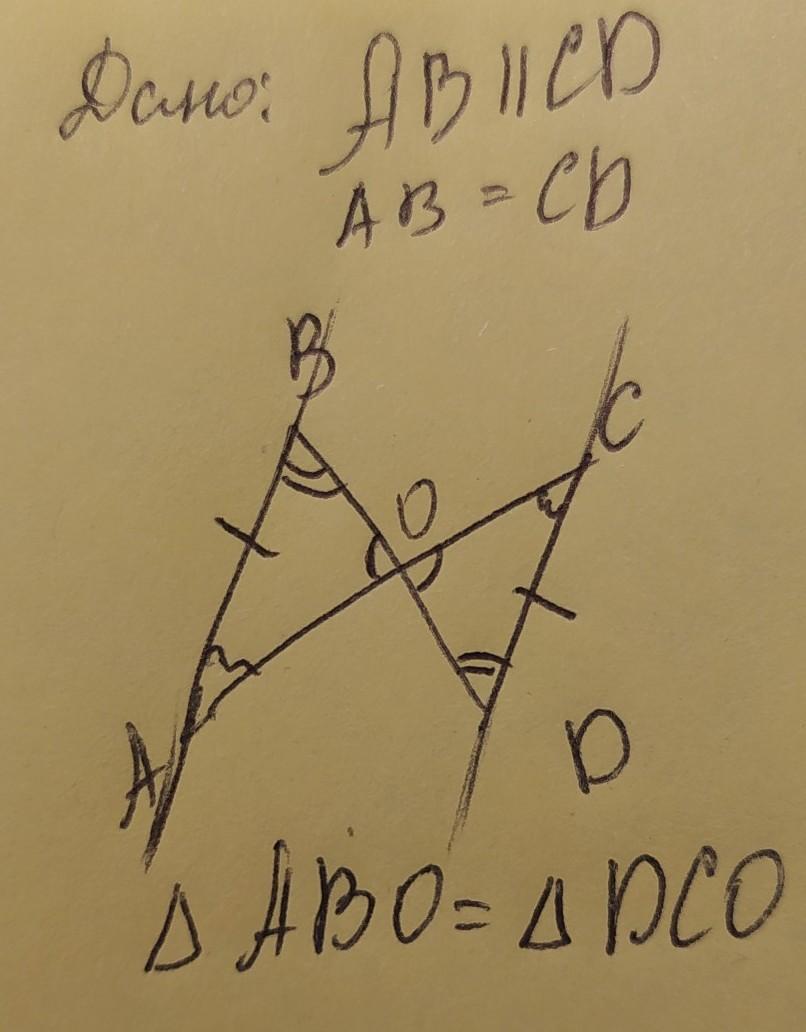 Дано: AB || CD
AB = CD
B
C
O
A
D
Δ ABO = Δ DCO